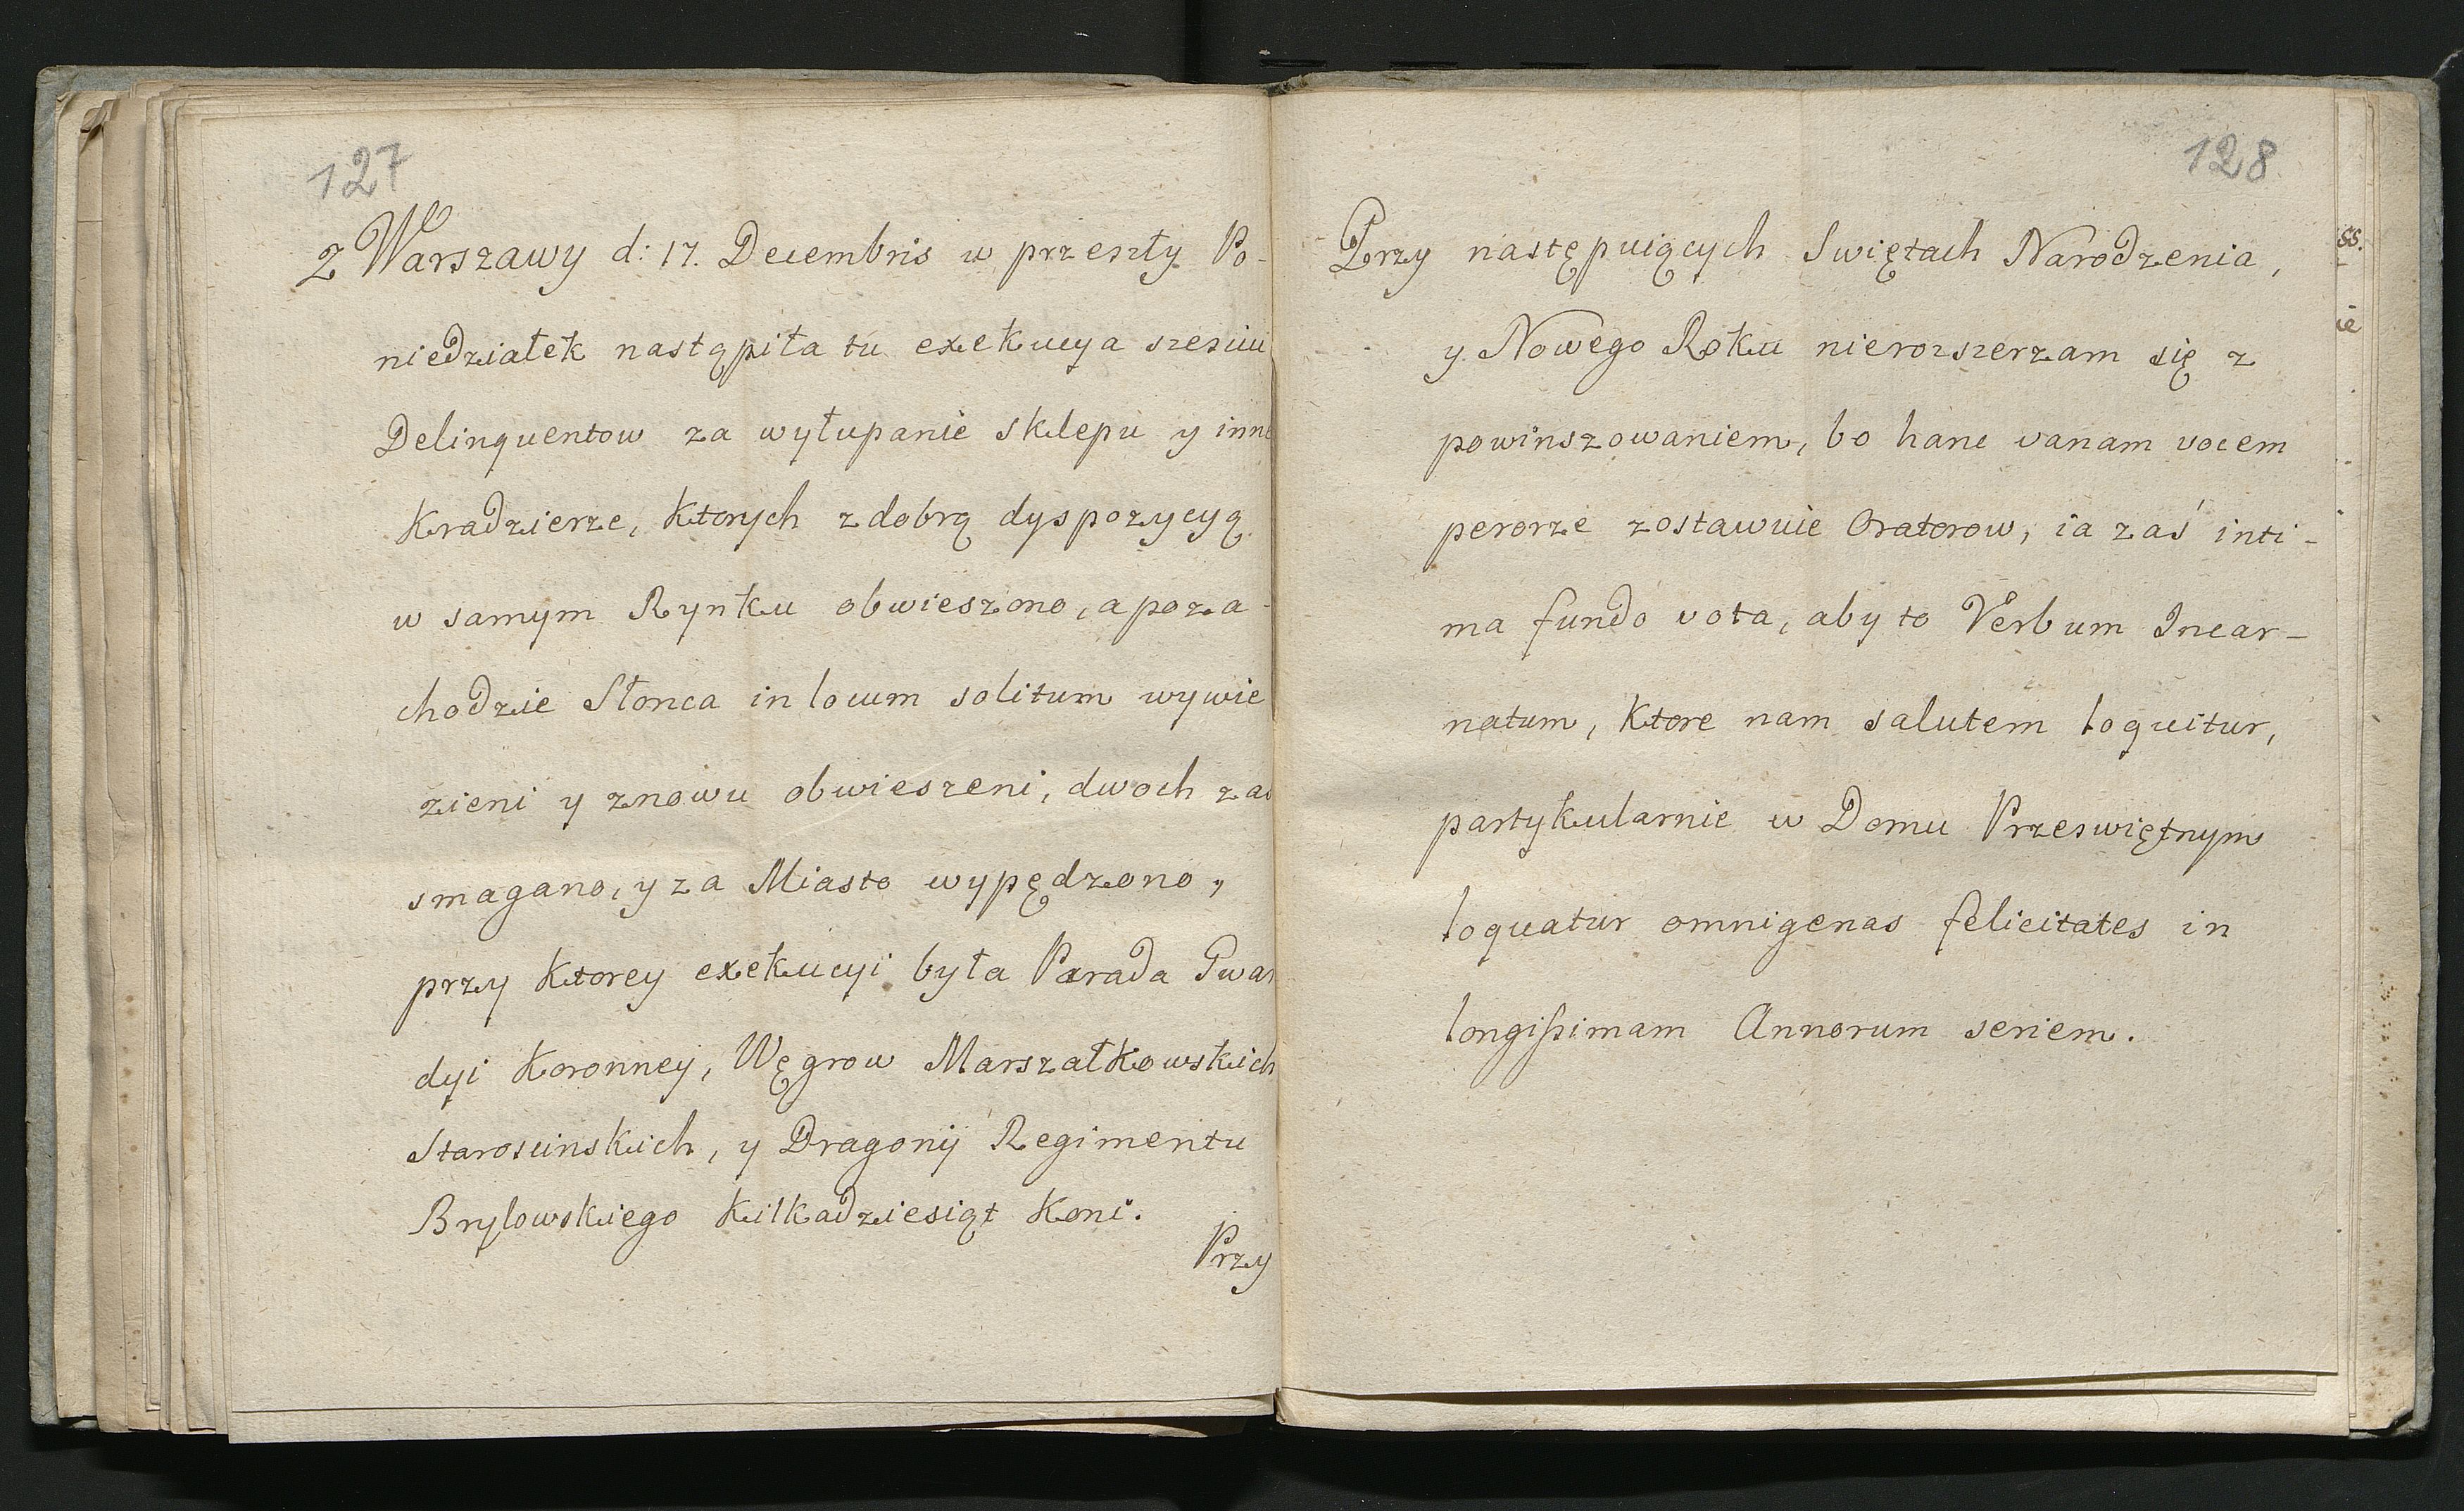 127
Z Warszawy d: 17. Decembris w przeszły Po-
niedziałek nastąpiła tu exekucya sześciu
Delinquentow za wyłupanie sklepu y inne
Kradzierze, Ktorych z dobrą dyspozycyą
w samym Rynku obwieszono, a po za-
chodzie Słonca in locum solitum wywie
zieni y znowu obwieszeni, dwoch zas
smagano, y za Miasto wypędzono,
przy Ktorey exekucyi była Parada Gwar
dyi Koronney, Węgrow Marszałkowskich
Staroscinskich, y Dragonij Regimentu
Brylowskiego Kilkadziesiąt Koni.
Przy
128
Przy następuiących Swiętach Narodzenia,
y Nowego Roku nierozszerzam się z
powinszowaniem, bo hanc vanam vocem
perorze zostawuie Oratorow, ia zaś inti-
ma fundo vota, aby to Verbum Incar-
natum, Ktore nam salutem loquitur,
partykularnie w Domu Przeswiętnym
loquatur omnigenas felicitates in
longissimam Annorum seriem.